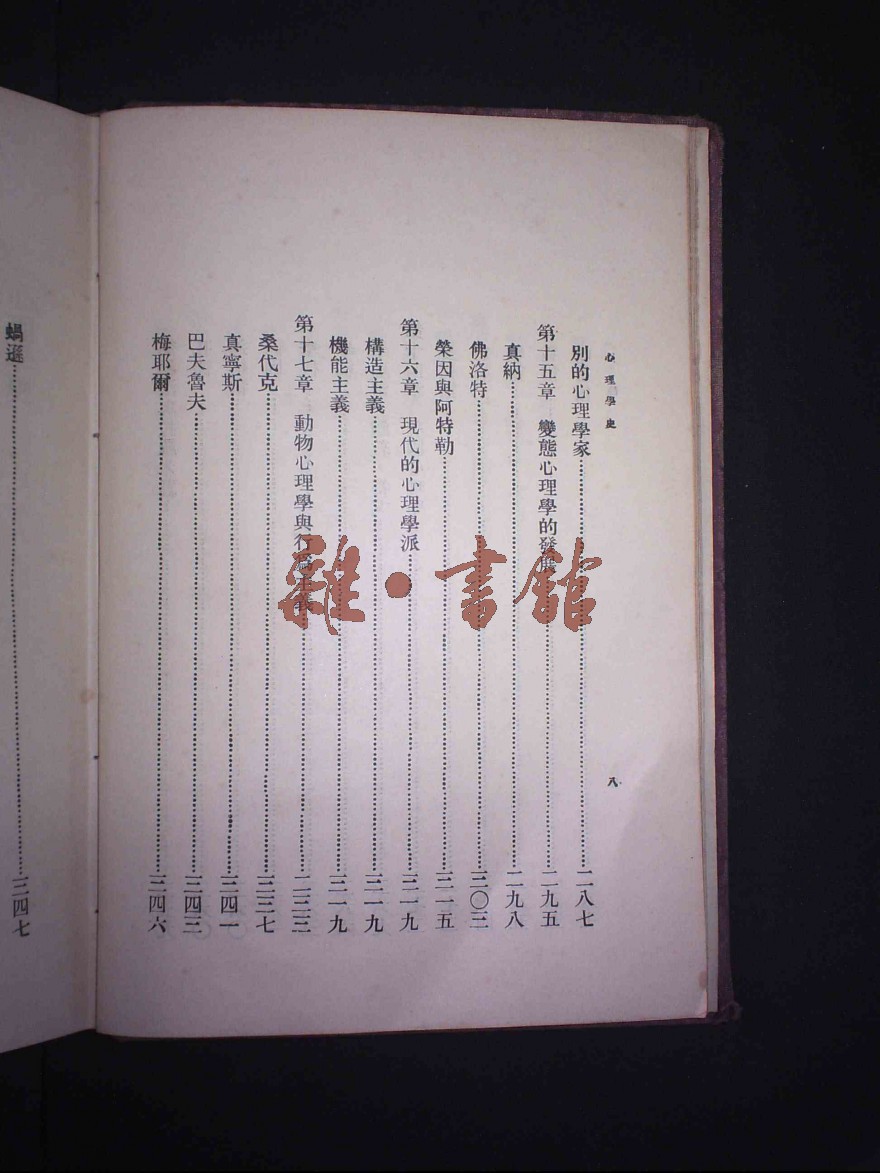 心理學史
八
別的心理學家……二八七
第十五章 變態心理學的發展……二九五
真納……二九八
佛洛特……三〇三
榮因與阿特勒……三一五
第十六章 現代的心理學派……三一九
構造主義……三一九
機能主義……三一九
第十七章 動物心理學與行爲主義……三三三
桑代克……三三七
真寧斯……三四一
巴夫魯夫……三四三
梅耶爾……三四六
蝸遜……三四七
雜·書館